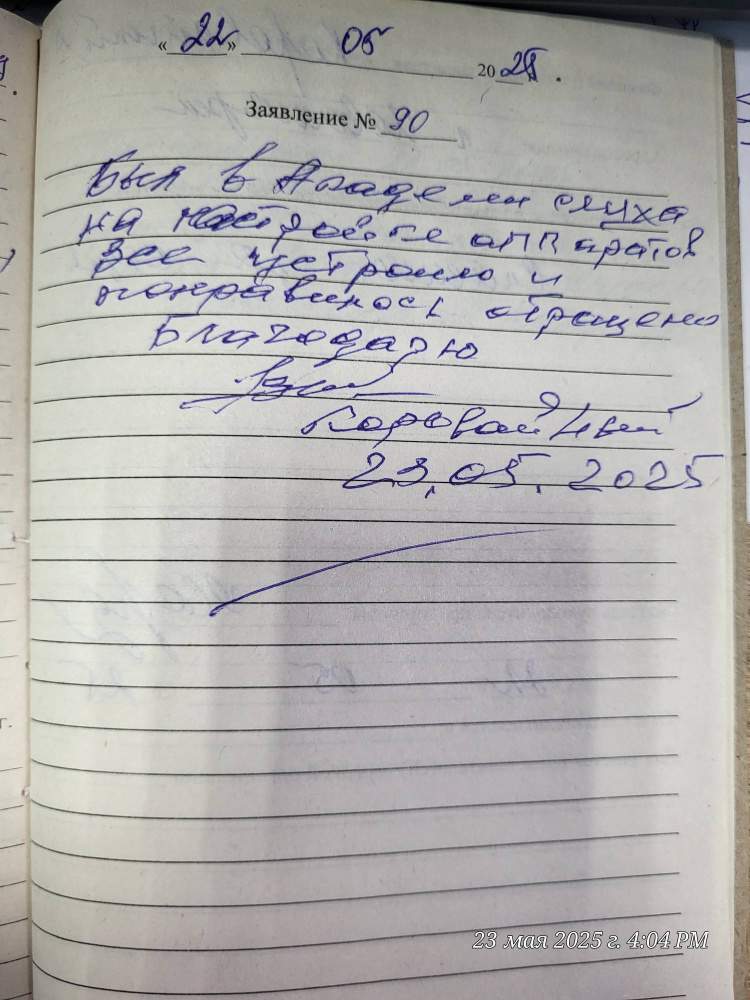 «22» 05 2025.
Заявление № 90
Был в Академи слуха
на настройке аппаратов
все устроило и
понравилось обращено
Благодарю
Коровайный
23.05.2025
23 мая 2025 г. 4:04 PM